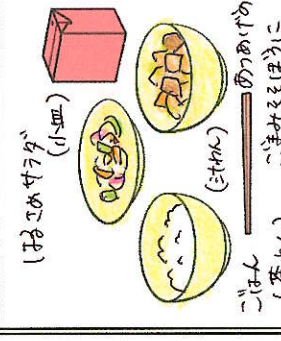 はるさめサラダ
(小皿)
(汁わん)
あつあげの
ごまみそそぼろに
ごはん
(茶わん)